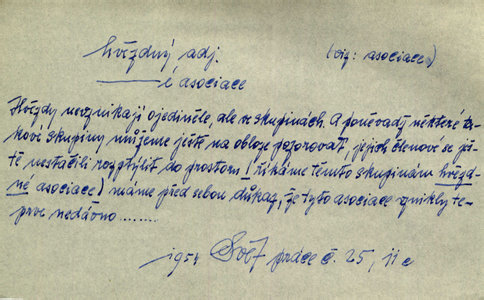 hvězdný adj. (viz: asociace)
——— é asociace
Hvězdy nevznikají ojediněle, ale ve skupinách. A poněvadž některé ta-
kové skupiny můžeme ještě na obloze pozorovat, jejich členové se je-
tě nestačili rozptýlit do prostoru (říkáme těmto skupinám hvězd-
né asociace) máme před sebou důkaz, že tyto asociace vznikly te-
prve nedávno ........
1954 Svět práce č. 25, 11c